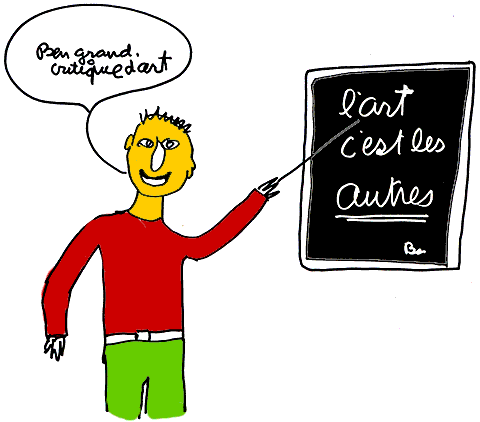 Ben grand
critique d'art
l'art
c'est les
autres
Ben